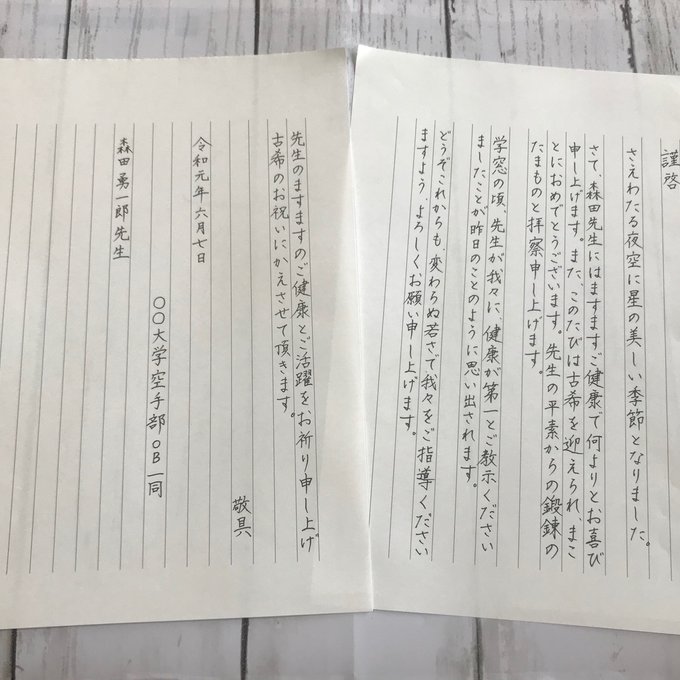 謹啓
さえわたる夜空に星の美しい季節となりました。
さて、森田先生にはますますご健康で何よりとお喜び
申し上げます。また、このたびは古希を迎えられ、まこ
とにおめでとうございます。先生の平素からの鍛錬の
たまものと拝察申し上げます。
学窓の頃、先生が我々に、健康が第一とご教示ください
ましたことが昨日のことのように思い出されます。
どうぞこれからも、変わらぬ若さで我々をご指導ください
ますよう、よろしくお願い申し上げます。
先生のますますのご健康とご活躍をお祈り申し上げ
古希のお祝いにかえさせて頂きます。
敬具
令和元年六月七日
〇〇大学空手部OB一同
森田勇一郎先生